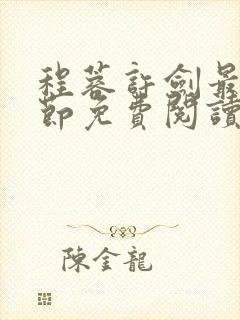 程蓉許劍最
節免費閱讀
陳金龍